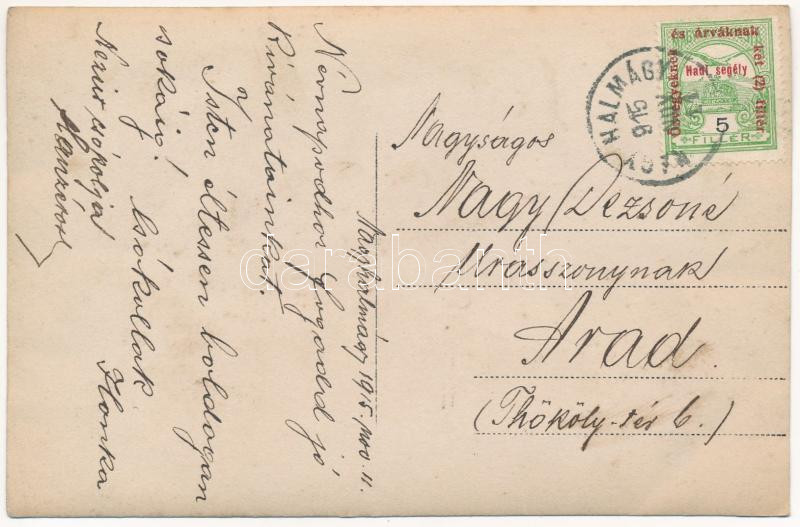 Nagyhalmágy 1915. nov. 11.
Névnapodhoz fogadd jó
kivánatainkat.
Isten éltessen boldogan
sokáig! Csókollak
Ilonka
csókolja
Özvegyeknek
és árváknak
két (2) fillér
Hadi segély
5
FILLÉR
HALMÁGY
915
Nagyságos
Nagy Dezsőné
Urasszonynak
Arad.
(Thököly-tér 6.)
darabanth